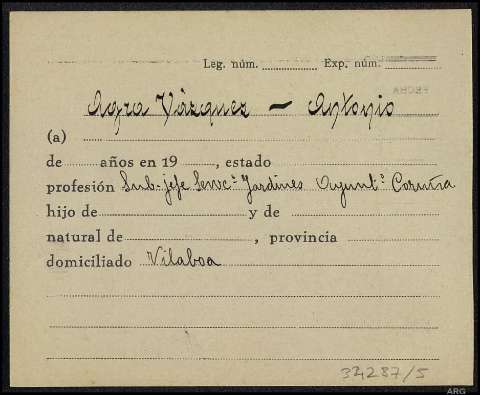 Leg. núm. Exp. núm.
FECHA
Agra Vázquez — Antonio
(a)
de años en 19 , estado
profesión Sub-jefe Servc.º Jardines Ayunt.º Coruña
hijo de y de
natural de , provincia
domiciliado Vilaboa
34287/5
ARG